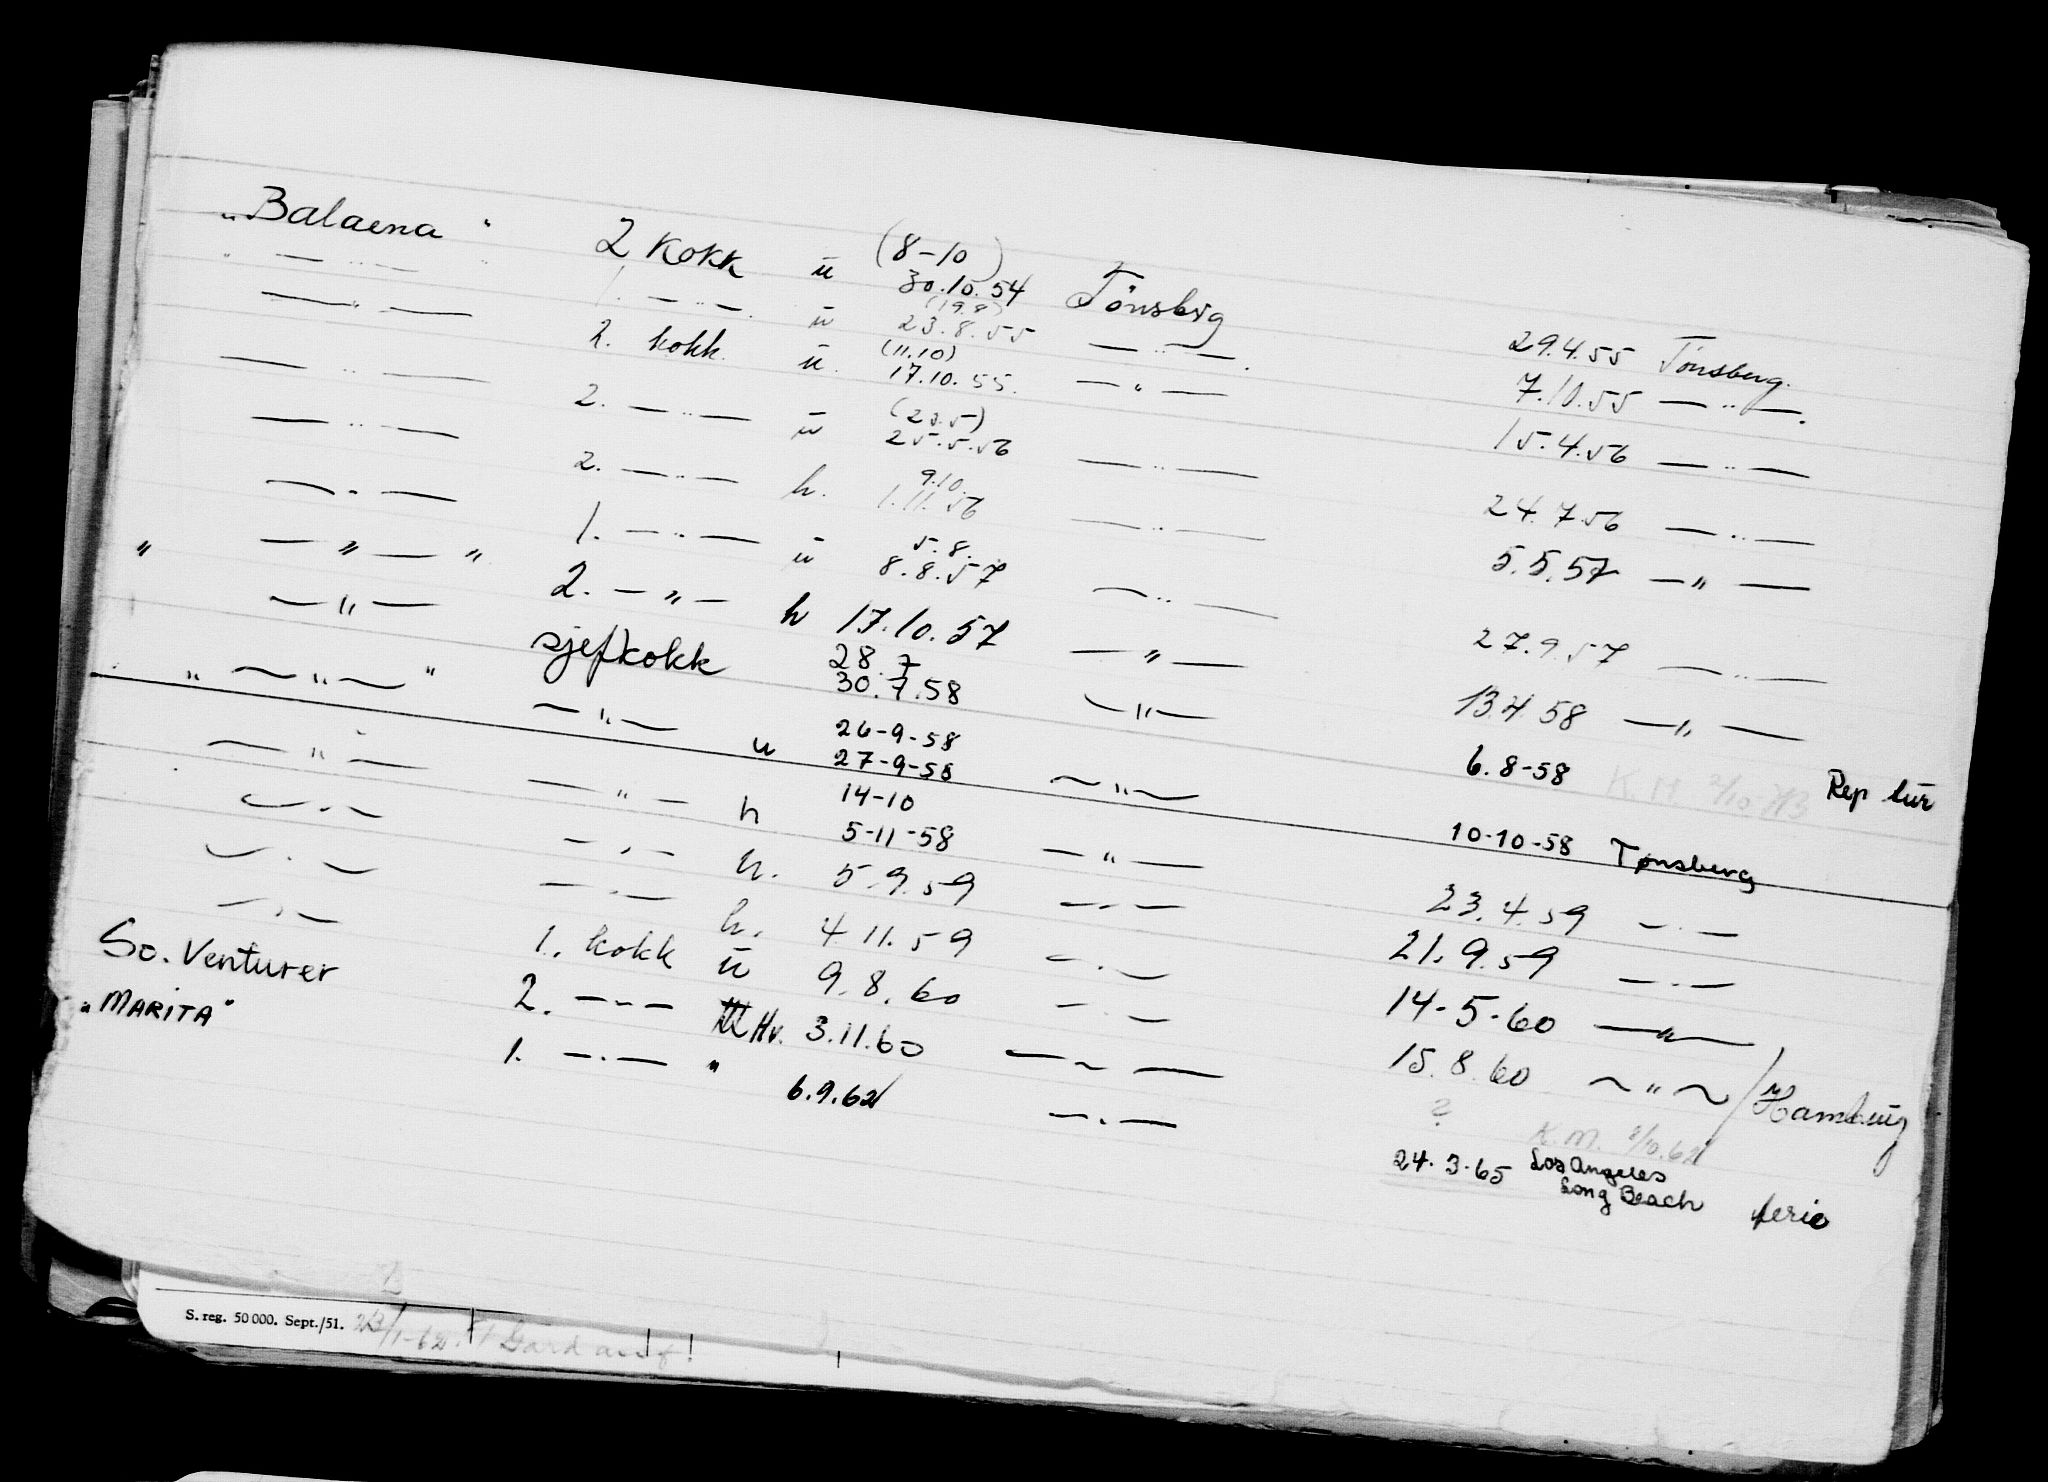 "Balaena" 2 Kokk ū (8-10) 30.10.54 Tönsbrg 29.4.55 Tönsberg.
" — " — " 1. — " — ū (19.8) 23.8.55 — " — 7.10.55 — " —
— " — 2. kokk ū (11.10) 17.10.55. — " — 15.4.56 — " —
— " — 2. — " — ū (23.5) 25.5.56 — " — 24.7.56 — " —
— " — 2. — " — h. 9.10. 1.11.56 — " — 5.5.57 — " —
— " — 1. — " — ū 5.8. 8.8.57 — " — 27.9.57 — " —
" — " — " 2. — " — h 17.10.57 — " — 13.4.58 — " —
— " — sjefkokk 28.7 30.7.58 — " — 6.8-58 Rep tur
" — " — " — " — u 26-9-58 27-9-58 — " — 10-10-58 Tønsberg
— " — — " — h 14-10 5-11-58 — " — 23.4.59 — " —
— " — — " — h. 5.9.59 — " — 21.9.59 — " —
— " — — " — h. 4 11.59 — " — 14-5-60 — " —
— " — 1. kokk ū 9.8.60 — " — 15.8.60 — " — / Hamburg
So. Venturer 2. — " — Hv. 3.11.60 — " — ? K.M. 8/10.62
"MARITA" 1. — " — " 6.9.62 — " — 24.3.65 Los Angeles
Long Beach ferie
S. reg. 50 000. Sept./51.